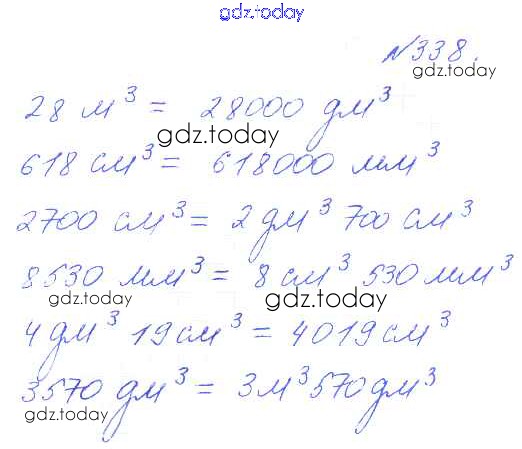 gdz.today
№338.
gdz.today
28 м³ = 28000 дм³
gdz.today
618 см³ = 618000 мм³
2700 см³ = 2 дм³ 700 см³
8530 мм³ = 8 см³ 530 мм³
gdz.today gdz.today
4 дм³ 19 см³ = 4019 см³
3570 дм³ = 3 м³ 570 дм³
gdz.today gdz.today